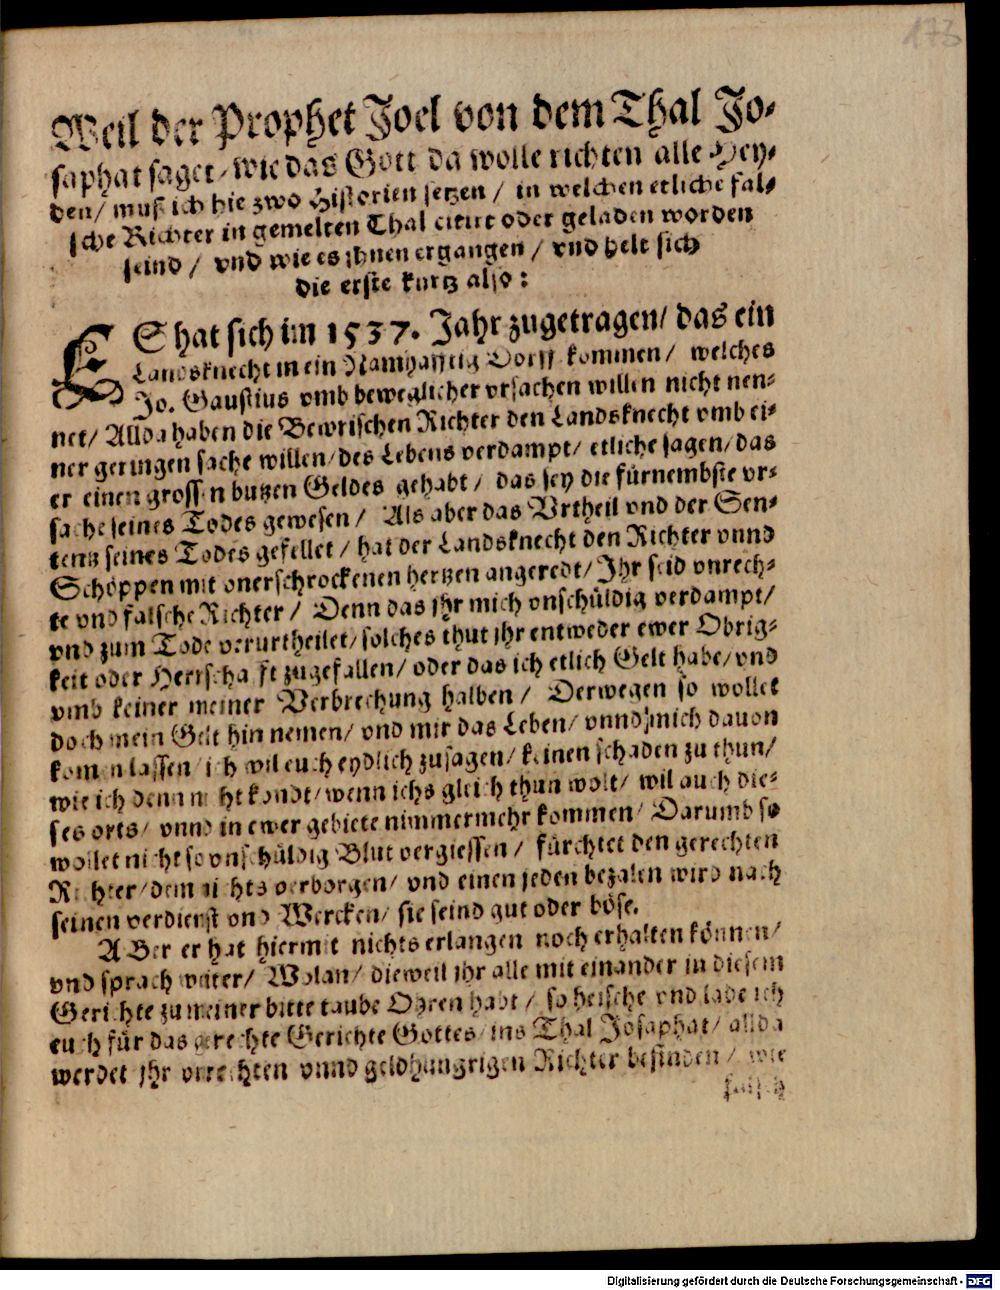 173
Weil der Prophet Joel von dem Thal Jo-
saphat saget / wie das Gott da wolle richten alle Hey-
den / muß ich hie zwo Historien setzen / in welchen etliche fal-
sche Richter in gemelten Thal citirt oder geladen worden
seind / vnd wie es jhnen ergangen / vnd helt sich
die erste kurtz also:
ES hat sich im 1537. Jahr zugetragen / das ein
Landsknecht in ein Namhafftig Dorff kommen / welches
Jo. Gaustius vmb beweglicher vrsachen willen nicht nen-
net / Allda haben die Bewrischen Richter den Landsknecht vmb ei-
ner geringen sache willen / des Lebens verdampt / etliche sagen / das
er einen grossen butzen Geldes gehabt / das sey die fürnembste vr-
sache seines Todes gewesen / Als aber das Vrtheil vnd der Sen-
tentz seines Todes gefellet / hat der Landsknecht den Richter vnnd
Schöppen mit vnerschrockenen hertzen angeredt / Ihr seid vnrech-
te vnd falsche Richter / Denn das jhr mich vnschüldig verdampt /
vnd zum Tode verurtheilet / solches thut jhr entweder ewer Obrig-
keit oder Herrschafft zugefallen / oder das ich etlich Gelt habe / vnd
vmb keiner meiner Verbrechung halben / Derwegen so wollet
doch mein Gelt hin nemen / vnd mir das Leben / vnnd mich dauon
komen lassen / ich wil euch eydlich zusagen / keinen schaden zu thun /
wie ich denn nicht kondt / wenn ichs gleich thun wolt / wil auch die-
ses orts / vnnd in ewer gebiete nimmermehr kommen / Darumb so
wollet nicht so vnschüldig Blut vergiessen / fürchtet den gerechten
Richter / dem nichts verborgen / vnd einen jeden bezalen wird nach
seinen verdienst vnd Wercken / sie seind gut oder böse.
ABer er hat hiermit nichts erlangen noch erhalten können /
vnd sprach weiter / Wolan / dieweil jhr alle mit einander in diesem
Gerichte zu meiner bitte taube Ohren habt / so heische vnd lade ich
euch für das gerechte Gerichte Gottes / ins Thal Josaphat / allda
werdet jhr vnrechten vnnd geldhungrigen Richter befinden / wie
falsch
Digitalisierung gefördert durch die Deutsche Forschungsgemeinschaft - DFG